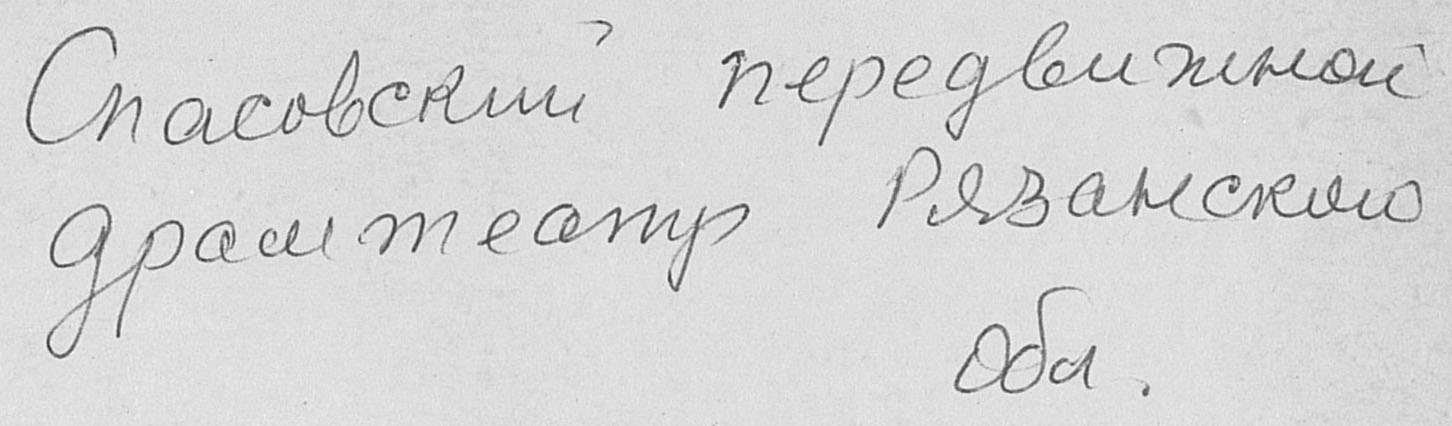 Спасовский передвижной
драмтеатр Рязанского
Обл.